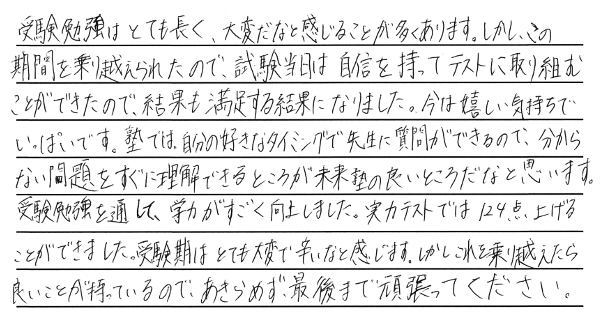 受験勉強はとても長く、大変だなと感じることが多くあります。しかし、この
期間を乗り越えられたので、試験当日は自信を持ってテストに取り組む
ことができたので、結果も満足する結果になりました。今は嬉しい気持ちで
いっぱいです。塾では、自分の好きなタイミングで先生に質問ができるので、分から
ない問題をすぐに理解できるところが未来塾の良いところだなと思います。
受験勉強を通して、学力がすごく向上しました。実力テストでは124点、上げる
ことができました。受験期はとても大変で辛いなと感じます。しかしこれを乗り越えたら
良いことが待っているので、あきらめず、最後まで頑張ってください。